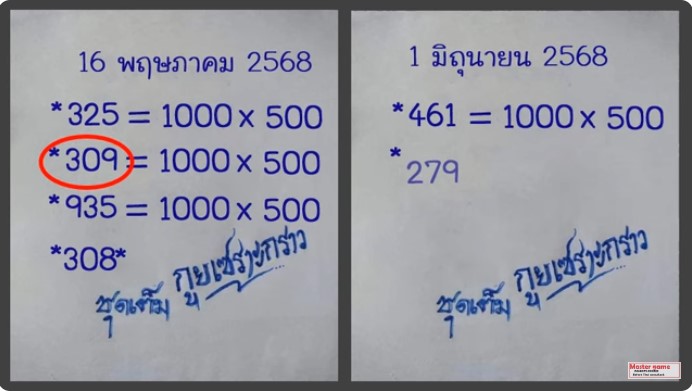 16 พฤษภาคม 2568
*325 = 1000 x 500
*309 = 1000 x 500
*935 = 1000 x 500
*308*
ชุดเต็ม กูยเซราะกราว
1 มิถุนายน 2568
*461 = 1000 x 500
*279
ชุดเต็ม กูยเซราะกราว
Master game